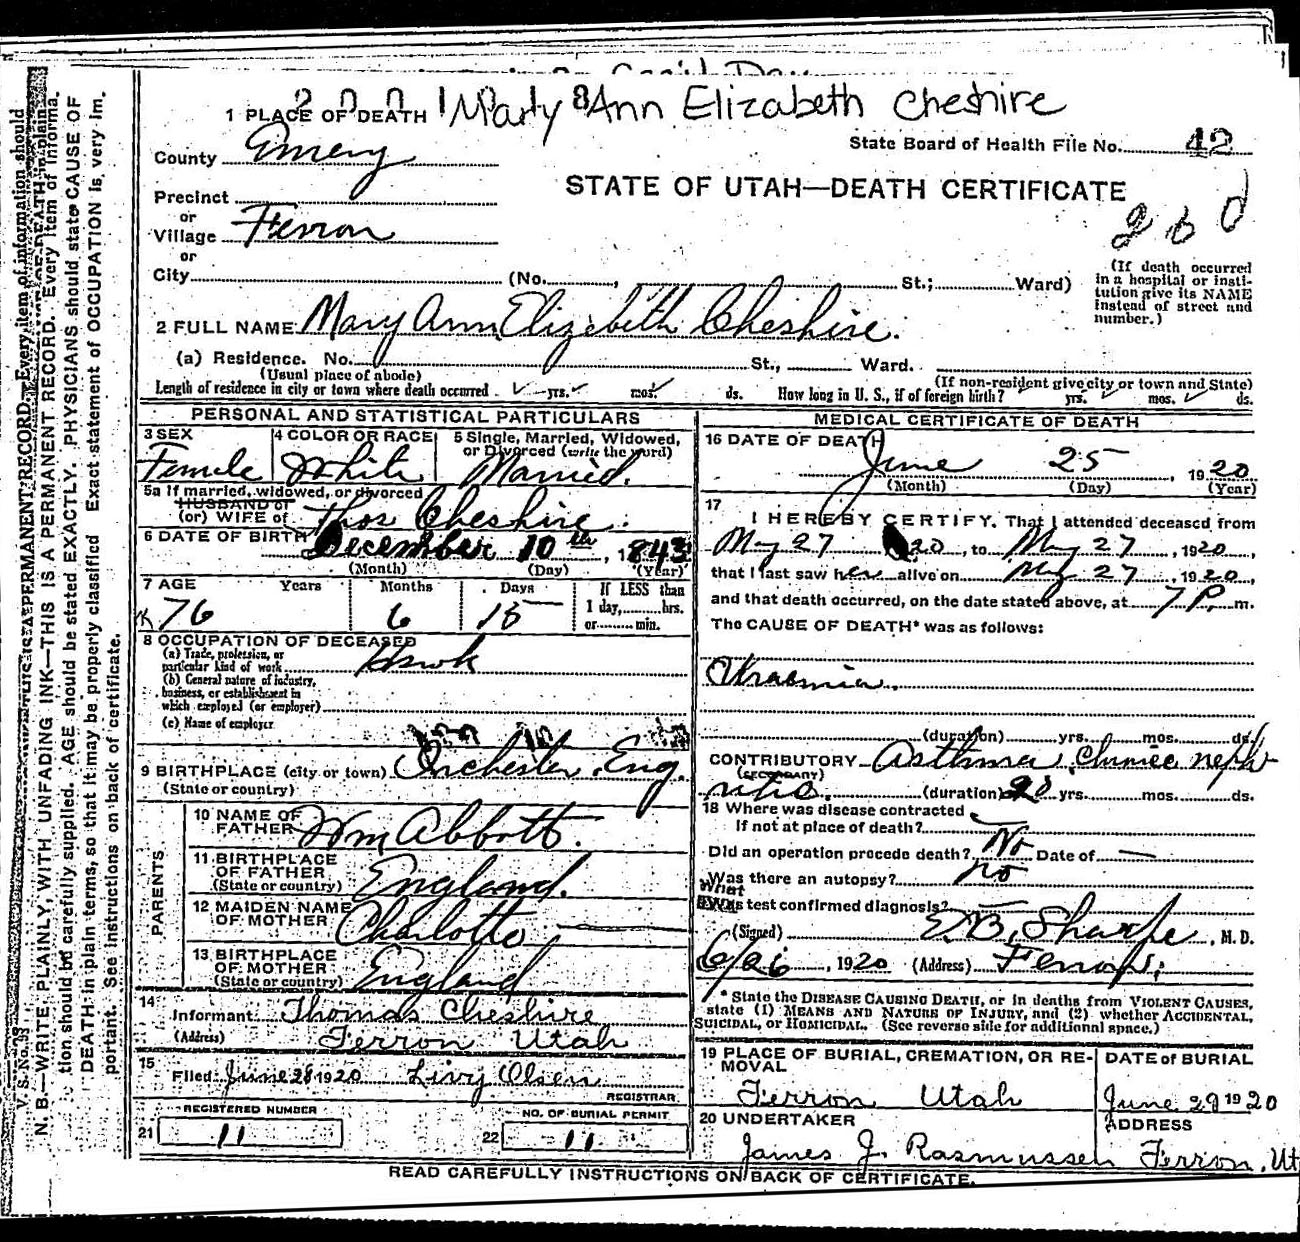 Mary Ann Elizabeth Cheshire
1 PLACE OF DEATH
County Emery
State Board of Health File No. 42
STATE OF UTAH—DEATH CERTIFICATE
260
Precinct
or
Village Ferron
or
City (No. , St.; Ward)
(If death occurred in a hospital or institution give its NAME instead of street and number.)
2 FULL NAME Mary Ann Elizebeth Cheshire.
(a) Residence. No. St., Ward.
(Usual place of abode) (If non-resident give city or town and State)
Length of residence in city or town where death occurred yrs. mos. ds. How long in U. S., if of foreign birth? yrs. mos. ds.
PERSONAL AND STATISTICAL PARTICULARS
3 SEX Female
4 COLOR OR RACE White
5 Single, Married, Widowed, or Divorced (write the word) Married.
5a If married, widowed, or divorced
HUSBAND of
(or) WIFE of Thos Cheshire.
6 DATE OF BIRTH December 10th, 1843
(Month) (Day) (Year)
7 AGE Years Months Days If LESS than
76 6 15 1 day, hrs.
or min.
8 OCCUPATION OF DECEASED
(a) Trade, profession, or particular kind of work Hswk
(b) General nature of industry, business, or establishment in which employed (or employer)
(c) Name of employer
9 BIRTHPLACE (city or town) Eng.
(State or country)
PARENTS
10 NAME OF FATHER Wm Abbott.
11 BIRTHPLACE OF FATHER (State or country) England.
12 MAIDEN NAME OF MOTHER Charlotte
13 BIRTHPLACE OF MOTHER (State or country) England
14
Informant Thomas Cheshire
(Address) Ferron Utah
15
Filed June 28 1920 Livy Olsen
REGISTRAR
REGISTERED NUMBER NO. OF BURIAL PERMIT
21 11 22 11
MEDICAL CERTIFICATE OF DEATH
16 DATE OF DEATH
June 25, 1920
(Month) (Day) (Year)
17
I HEREBY CERTIFY, That I attended deceased from
May 27 1920, to May 27, 1920,
that I last saw her alive on May 27, 1920,
and that death occurred, on the date stated above, at 7 P. m.
The CAUSE OF DEATH* was as follows:
Uraemia.
(duration) yrs. mos. ds.
CONTRIBUTORY Asthma, Chronic neph-
(SECONDARY)
ritis. (duration) 20 yrs. mos. ds.
18 Where was disease contracted
If not at place of death?
Did an operation precede death? No Date of —
Was there an autopsy? no
What test confirmed diagnosis?
(Signed) E. B. Sharpe, M. D.
6/26, 1920 (Address) Ferron,
* State the DISEASE CAUSING DEATH, or in deaths from VIOLENT CAUSES,
state (1) MEANS AND NATURE OF INJURY, and (2) whether ACCIDENTAL,
SUICIDAL, or HOMICIDAL. (See reverse side for additional space.)
19 PLACE OF BURIAL, CREMATION, OR REMOVAL DATE of BURIAL
Ferron Utah June 29 1920
20 UNDERTAKER ADDRESS
James J. Rasmussen Ferron, Ut
READ CAREFULLY INSTRUCTIONS ON BACK OF CERTIFICATE.
V. S. No. 33
N. B.—WRITE PLAINLY, WITH UNFADING INK—THIS IS A PERMANENT RECORD. Every item of informa-
tion should be carefully supplied. AGE should be stated EXACTLY. PHYSICIANS should state CAUSE OF
DEATH in plain terms, so that it may be properly classified. Exact statement of OCCUPATION is very im-
portant. See instructions on back of certificate.